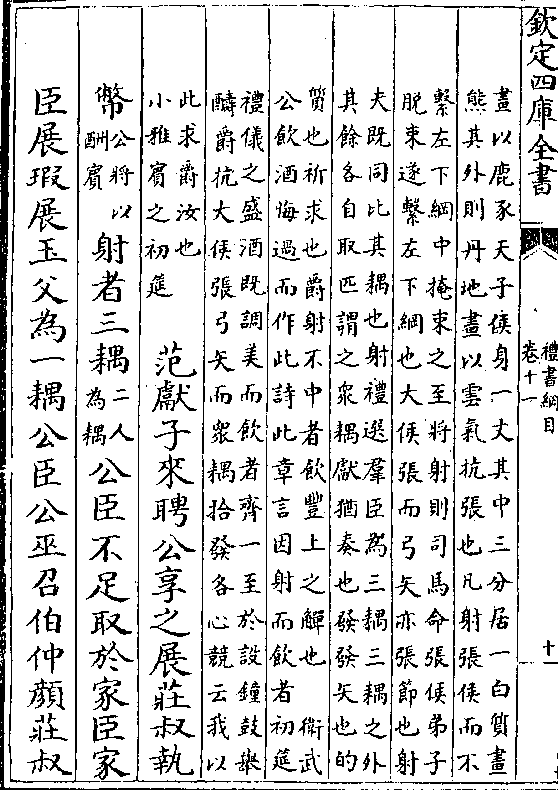 欽定四庫全書
禮書綱目
卷十一
十一
畫以鹿豕天子侯身一丈其中三分居一白質畫
熊其外則丹地畫以雲氣抗張也凡射張侯而不
繫左下綱中掩束之至將射則司馬命張侯弟子
脫束遂繫左下綱也大侯張而弓矢亦張節也射
夫既同比其耦也射禮選羣臣為三耦三耦之外
其餘各自取匹謂之衆耦獻猶奏也發發矢也的
質也祈求也爵射不中者飲豐上之觶也 衞武
公飲酒悔過而作此詩此章言因射而飲者初筵
禮儀之盛酒既調美而飲者齊一至於設鐘鼓舉
醻爵抗大侯張弓矢而衆耦拾發各心競云我以
此求爵汝也
小雅賓之初筵
范獻子來聘公享之展莊叔執
幣公將以酬賓射者三耦二人為耦公臣不足取於家臣家
臣展瑕展玉父為一耦公臣公巫召伯仲顏莊叔